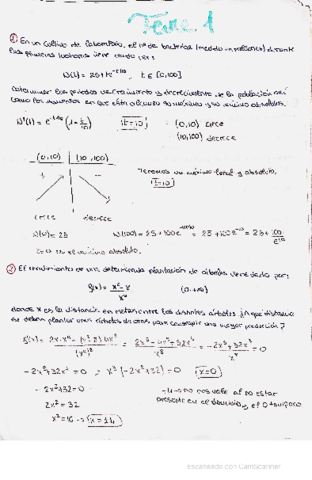 Tema 1
① En un cultivo de laboratorio, el nº de bacterias (medido en millones) durante
las primeras horas viene dado por:
N(t) = 25 + t e^-t/10, t ∈ [0,100]
Determinar los periodos de crecimiento y decrecimiento de la población así
como los momentos en que ésta alcanza su máximo y su mínimo absolutos.
N'(t) = e^-t/10 (1 - t/10) t=10 (0,10) crece
(10,100) decrece
(0,10) (10,100)
Tenemos un máximo local y absoluto,
t=10
crece decrece
N(0) = 25 N(100) = 25 + 100 e = 25 + 100 e^-10 = 25 + 100/e^10
es el mínimo absoluto.
② El rendimiento de una determinada plantación de árboles viene dado por:
f(x) =
donde x es la distancia en metros entre los distintos árboles ¿A qué distancia
se deben plantar para conseguir una mayor producción?
-2x⁵ + 32x³ = 0 x³(-2x² + 32) = 0 x=0
-2x² + 32 = 0
2x² = 32
x² = 16 → x = ±4
-4 no nos vale al no estar
presente en el dominio y el 0 tampoco
Escaneado con CamScanner